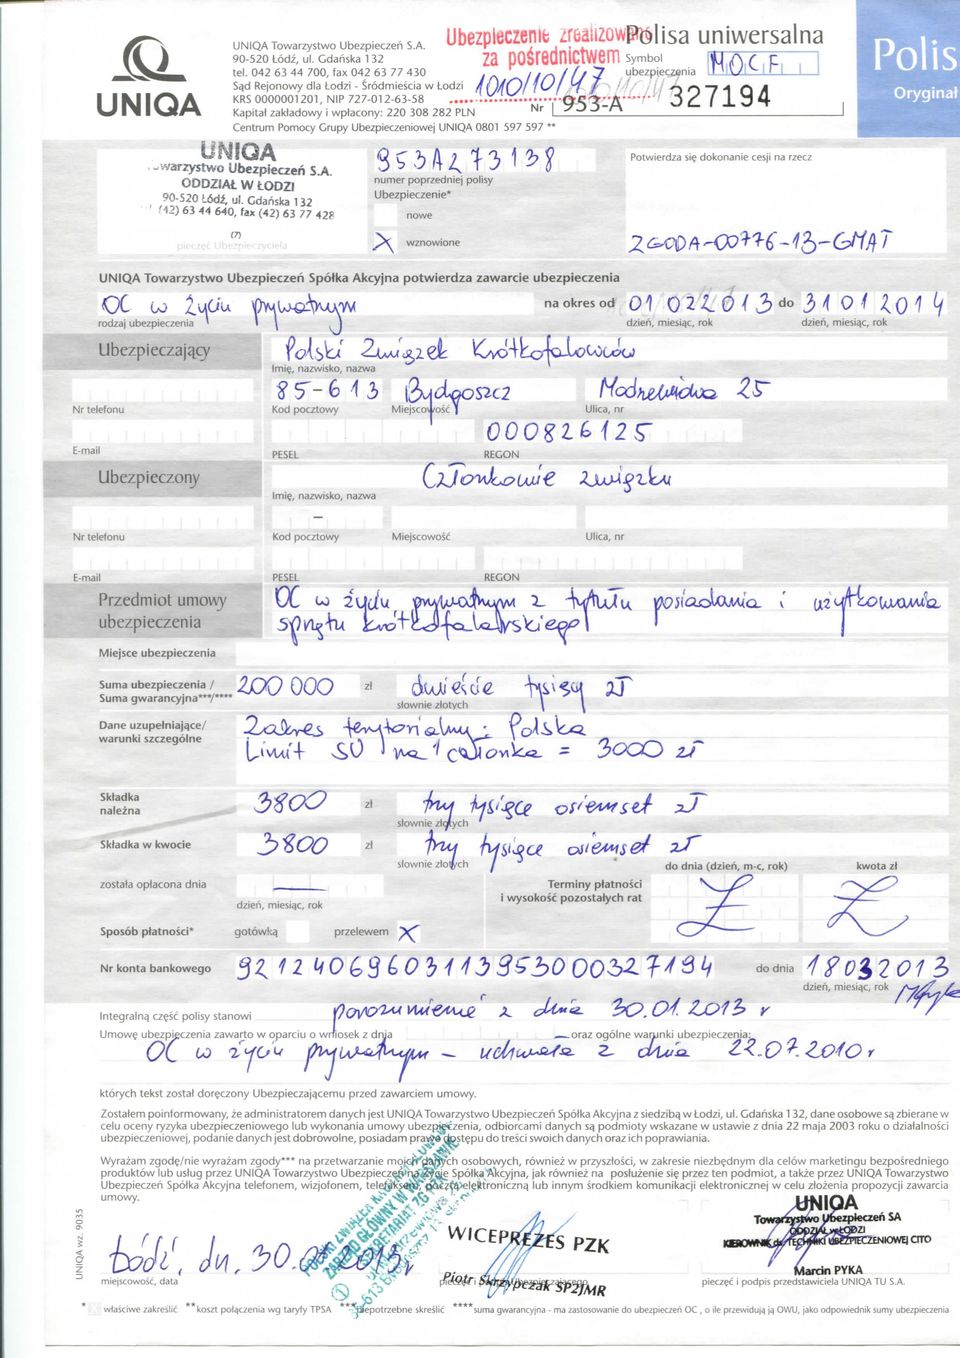 UNIQA
UNIQA Towarzystwo Ubezpieczeń S.A.
90-520 Łódź, ul. Gdańska 132
tel. 042 63 44 700, fax 042 63 77 430
Sąd Rejonowy dla Łodzi - Śródmieścia w Łodzi
KRS 0000001201, NIP 727-012-63-58
Kapitał zakładowy i wpłacony: 220 308 282 PLN
Centrum Pomocy Grupy Ubezpieczeniowej UNIQA 0801 597 597 **
Ubezpieczenie zrealizowano
za pośrednictwem
1010/10/47
Polisa uniwersalna
Symbol
ubezpieczenia
M O C F
Nr 953-A 327194
Polis
Oryginał
UNIQA
Towarzystwo Ubezpieczeń S.A.
ODDZIAŁ W ŁODZI
90-520 Łódź, ul. Gdańska 132
(42) 63 44 640, fax (42) 63 77 428
(7)
pieczęć Ubezpieczyciela
953A273138
numer poprzedniej polisy
Ubezpieczenie*
nowe
X wznowione
Potwierdza się dokonanie cesji na rzecz
ZGODA-00776-13-GMAT
UNIQA Towarzystwo Ubezpieczeń Spółka Akcyjna potwierdza zawarcie ubezpieczenia
OC w życiu prywatnym na okres od 01 02 2013 do 31 01 2014
rodzaj ubezpieczenia dzień, miesiąc, rok dzień, miesiąc, rok
Ubezpieczający Polski Związek Krótkofalowców
Imię, nazwisko, nazwa
85-613 Bydgoszcz Modrzewiowa 25
Nr telefonu Kod pocztowy Miejscowość Ulica, nr
000826125
E-mail PESEL REGON
Ubezpieczony Członkowie związku
Imię, nazwisko, nazwa
–
Nr telefonu Kod pocztowy Miejscowość Ulica, nr
E-mail PESEL REGON
Przedmiot umowy OC w życiu prywatnym z tytułu posiadania i użytkowania
ubezpieczenia sprzętu krótkofalarskiego
Miejsce ubezpieczenia
Suma ubezpieczenia / 200 000 zł dwieście tysięcy zł
Suma gwarancyjna***/**** słownie złotych
Dane uzupełniające/ Zakres terytorialny: Polska
warunki szczególne Limit SU na 1 członka = 3000 zł
Składka
należna 3800 zł trzy tysiące osiemset zł
słownie złotych
Składka w kwocie 3800 zł trzy tysiące osiemset zł
słownie złotych do dnia (dzień, m-c, rok) kwota zł
została opłacona dnia — Terminy płatności
dzień, miesiąc, rok i wysokość pozostałych rat
Sposób płatności* gotówką przelewem X
Nr konta bankowego 92124069603113953000327194 do dnia 18032013
dzień, miesiąc, rok
Integralną część polisy stanowi porozumienie z dnia 30.01.2013 r
Umowę ubezpieczenia zawarto w oparciu o wniosek z dnia oraz ogólne warunki ubezpieczenia:
OC w życiu prywatnym - uchwała z dnia 22.07.2010 r
których tekst został doręczony Ubezpieczającemu przed zawarciem umowy.
Zostałem poinformowany, że administratorem danych jest UNIQA Towarzystwo Ubezpieczeń Spółka Akcyjna z siedzibą w Łodzi, ul. Gdańska 132, dane osobowe są zbierane w
celu oceny ryzyka ubezpieczeniowego lub wykonania umowy ubezpieczenia, odbiorcami danych są podmioty wskazane w ustawie z dnia 22 maja 2003 roku o działalności
ubezpieczeniowej, podanie danych jest dobrowolne, posiadam prawo dostępu do treści swoich danych oraz ich poprawiania.
Wyrażam zgodę/nie wyrażam zgody*** na przetwarzanie moich danych osobowych, również w przyszłości, w zakresie niezbędnym dla celów marketingu bezpośredniego
produktów lub usług przez UNIQA Towarzystwo Ubezpieczeń na Życie Spółka Akcyjna, jak również na posłużenie się przez ten podmiot, a także przez UNIQA Towarzystwo
Ubezpieczeń Spółka Akcyjna telefonem, wizjofonem, telefaksem, pocztą elektroniczną lub innym środkiem komunikacji elektronicznej w celu złożenia propozycji zawarcia
umowy.
UNIQA wz. 9035
Łódź, dn. 30.01.2013r
miejscowość, data
POLSKI ZWIĄZEK
ZARZĄD GŁÓWNY W WARSZAWIE
SEKRETARIAT ZG PZK
WICEPREZES PZK
Piotr Skrzypczak SP2JMR
UNIQA
Towarzystwo Ubezpieczeń SA
ODDZIAŁ w ŁODZI
KIEROWNIK ds. TECHNIKI UBEZPIECZENIOWEJ CITO
Marcin PYKA
pieczęć i podpis przedstawiciela UNIQA TU S.A.
* X właściwe zakreślić **koszt połączenia wg taryfy TPSA ***niepotrzebne skreślić ****suma gwarancyjna - ma zastosowanie do ubezpieczeń OC , o ile przewidują ją OWU, jako odpowiednik sumy ubezpieczenia